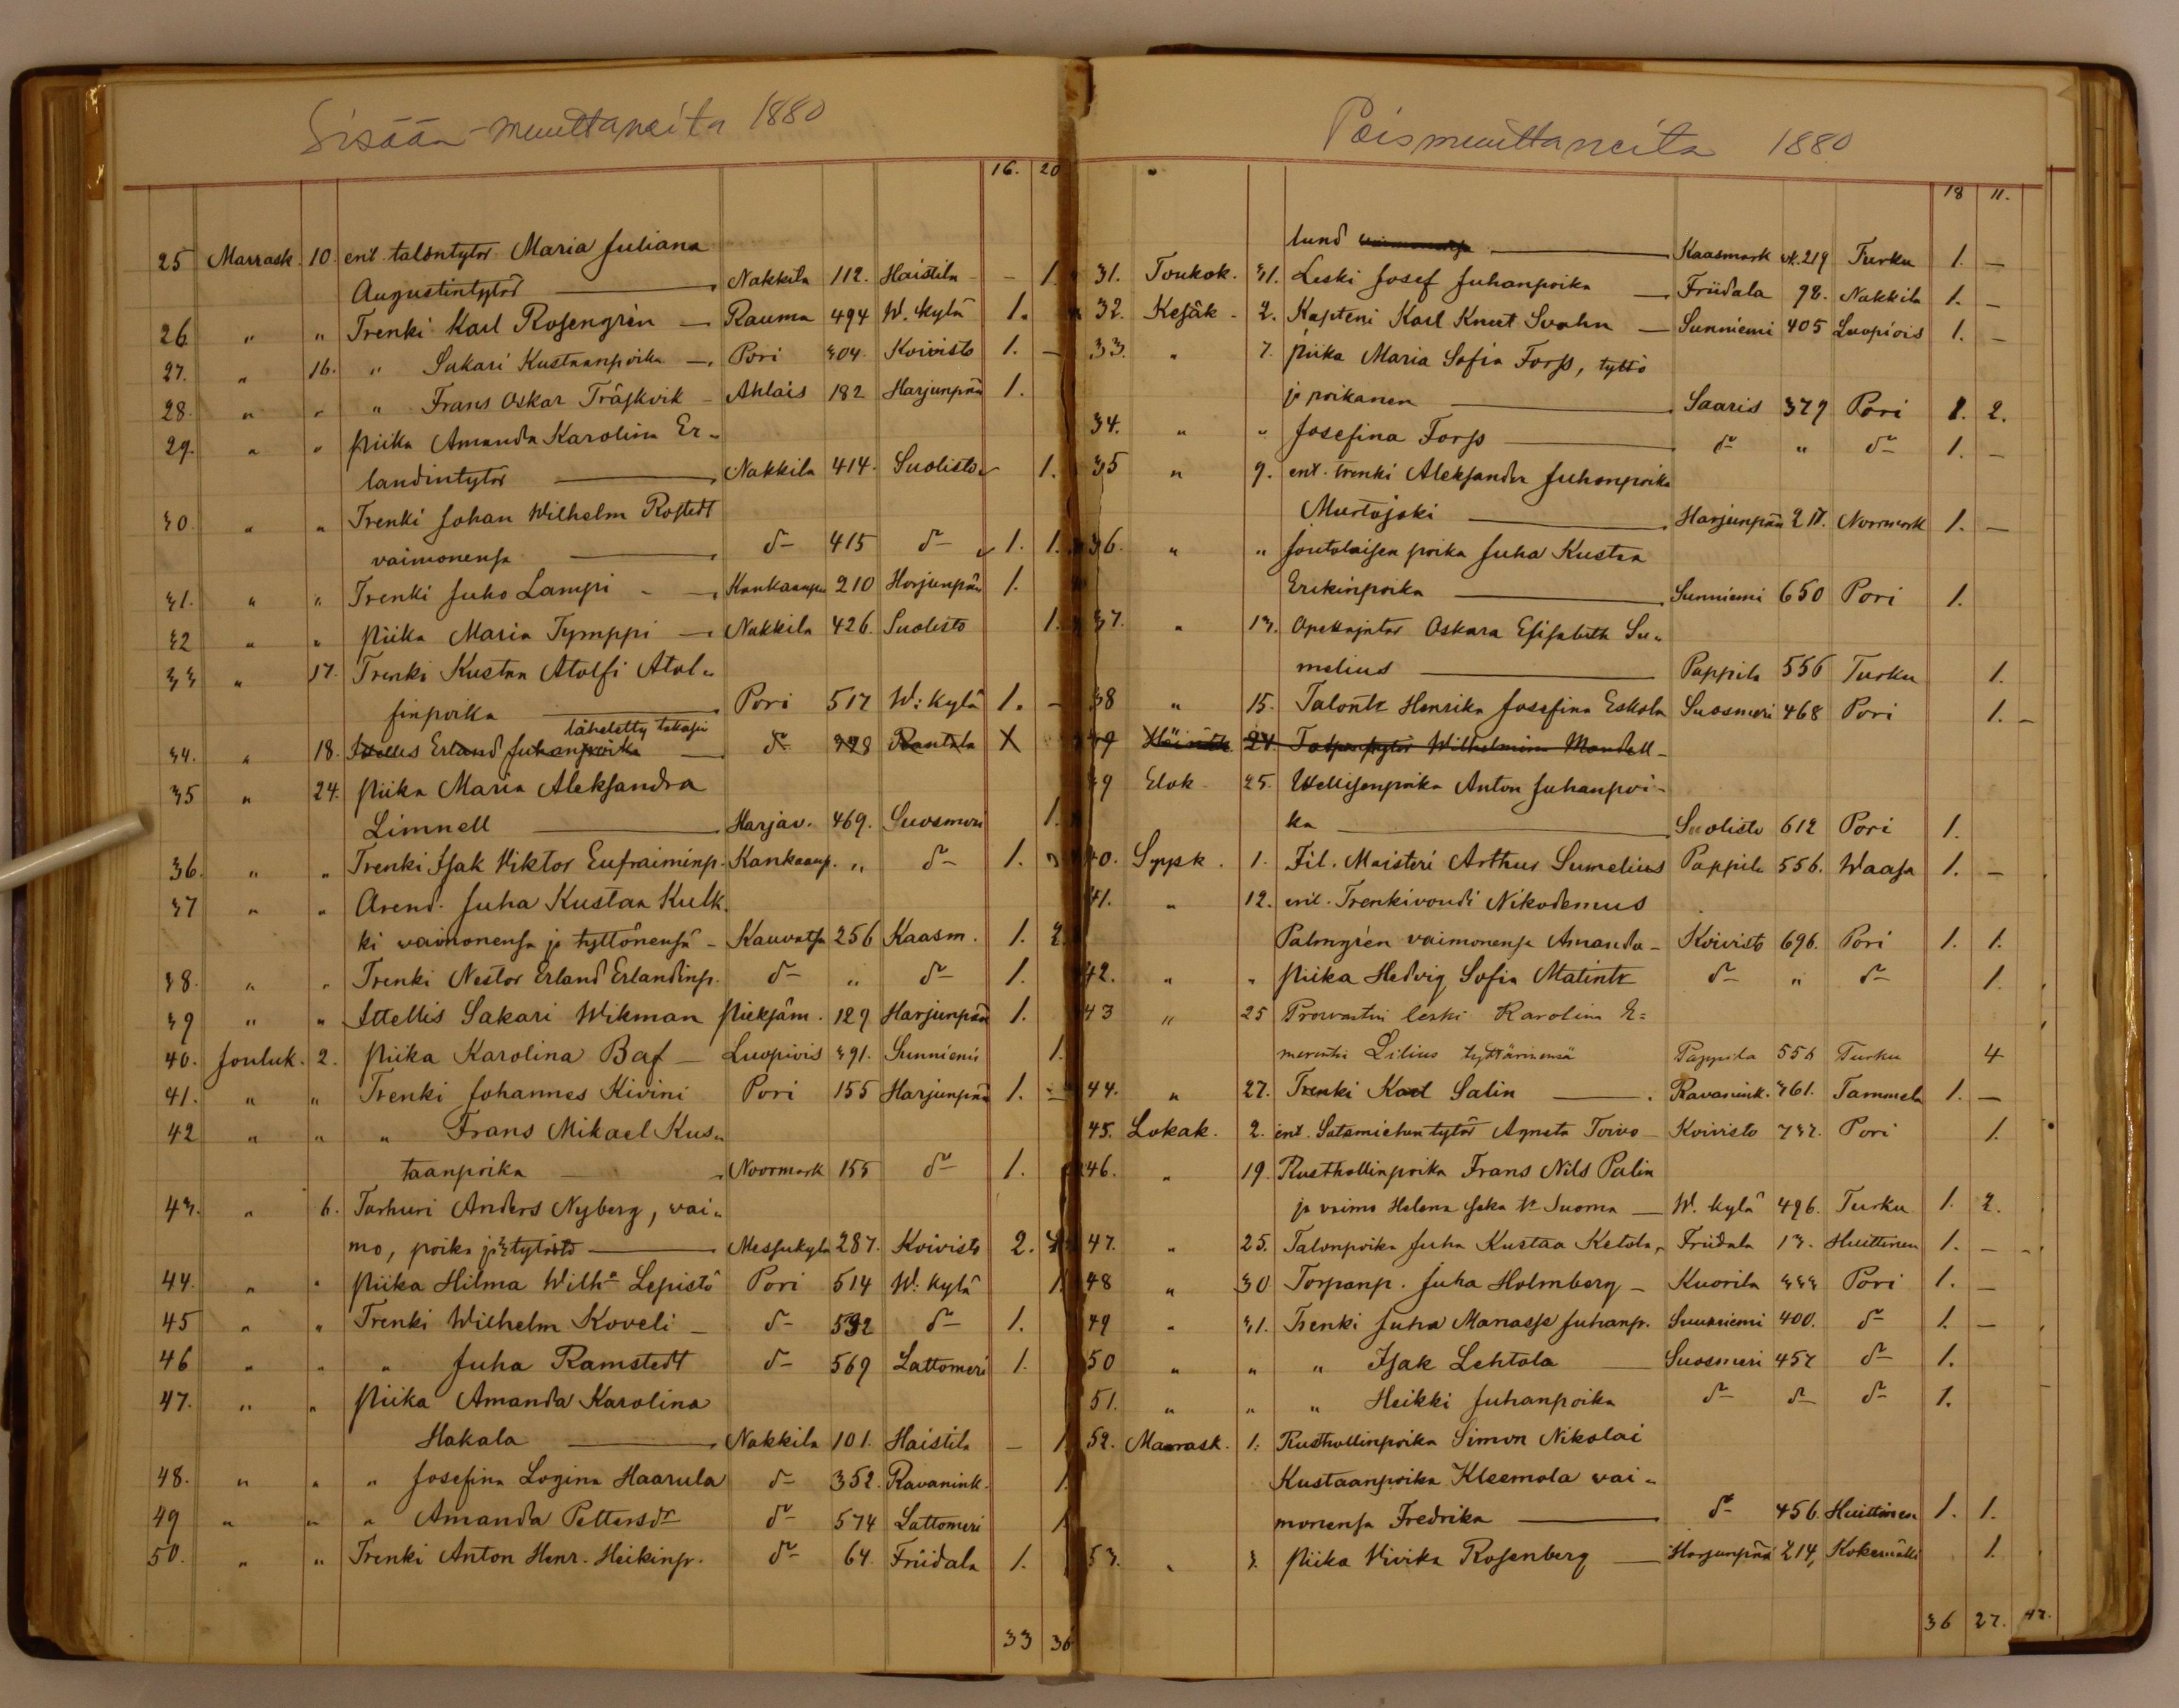 Sisään-muuttaneita 1880
16. 20
25 Marrask. 10. ent. talontytär Maria Juliana
Augustintytär — Nakkila 112. Haistila - - 1.
26 " " Trenki Karl Rosengrén — Rauma 494 W. kylä 1.
27. " 16. " Sakari Kustaanpoika — Pori 304. Koivisto 1. —
28. " " " Frans Oskar Träskvik - Ahlais 182 Harjunpää 1.
29. " " Piika Amanda Karolina Er-
landintytär — Nakkila 414. Suolisto 1.
30. " " Trenki Johan Wilhelm Rostedt
vaimonensa — d:o 415 d:o 1. 1.
31. " " Trenki Juho Lampi - Kankaanpä 210 Harjunpää 1.
32 " " Piika Maria Tymppi — Nakkila 426. Suolisto 1.
33 " 17. Trenki Kustaa Atolfi Atol-
finpoika — Pori 517 W: kylä 1. -
lähetetty takasin
34. " 18. Itellis Erland Juhanpoika — d:o 398 Rantala X
35 " 24. Piika Maria Aleksandra
Limnell — Harjav. 469. Suosmeri 1.
36. " " Trenki Isak Viktor Eufraiminp. Kankaanp. " d:o 1.
37 " " Arend. Juha Kustaa Kulk-
ki vaimonensa ja tyttönensä - Kauvatsa 256 Kaasm. 1. 2.
38. " " Trenki Nestor Erland Erlandinp. d:o " d:o 1.
39 " " Itellis Sakari Wikman Piekjäm. 129 Harjunpää 1.
40. Jouluk. 2. Piika Karolina Baf — Luvpiois 391. Sunniemi 1.
41. " " Trenki Johannes Kivini Pori 155 Harjunpää 1. -
42 " " " Frans Mikael Kus-
taanpoika — Noormark 155 d:o 1.
43. " 6. Tarhuri Anders Nyberg, vai-
mo, poika ja 3 tytärtä — Messukylä 287. Koivisto 2. 4
44. " " Piika Hilma Wilh:a Lepistö Pori 514 W: kylä 1.
45 " " Trenki Wilhelm Koveli — d:o 532 d:o 1.
46 " " " Juha Ramstedt d:o 569 Lattomeri 1.
47. " " Piika Amanda Karolina
Hakala — Nakkila 101. Haistila - 1.
48. " " " Josefina Logina Haarula d:o 352. Ravanink. 1.
49 " " " Amanda Pettersdr d:o 574 Lattomeri 1.
50. " " Trenki Anton Henr. Heikinp. d:o 64. Friidala 1.
33 36
Poismuuttaneita 1880
18 11.
lund vaimonensa — Kaasmark vk. 219 Turku 1. —
31. Toukok. 31. Leski Josef Juhanpoika — Friidala 98. Nakkila 1. -
32. Kesäk - 2. Kapteni Karl Knut Svahn — Sunniemi 405 Luvpiois 1. -
33. " 7. Piika Maria Sofia Forss, tyttö
ja poikanen — Saaris 379 Pori 1. 2.
34. " " Josefina Forss — d:o " d:o 1. -
35 " 9. ent. trenki Aleksander Juhanpoika
Murtojoki — Harjunpää 217. Norrmark 1. —
36. " " Joutolaisen poika Juha Kustaa
Erikinpoika — Sunniemi 650 Pori 1.
37. " 13. Opettajatar Oskara Elisabeth Su-
melius — Pappila 556 Turku 1.
38 " 15. Talontr Henrika Josefina Eskola Suosmeri 468 Pori 1. -
39 Heinäk 24. Torpantytär Wilhelmina Mandell -
39 Elok - 25. Itsellisenpoika Anton Juhanpoi-
ka — Suolisto 612 Pori 1.
40. Syysk. 1. Fil. Maisteri Arthur Sumelius Pappila 556. Waasa 1. -
41. " 12. ent. Trenkivouti Nikodemus
Palmgrén vaimonensa Amanda - Koivisto 696. Pori 1. 1.
42. " " Piika Hedvig Sofia Matintr d:o " d:o 1.
43 " 25 Provastin leski Karolina E=
merentia Lilius tyttärinensä Pappila 556 Turku 4
44. " 27. Trenki Karl Salin — Ravanink. 361. Tammela 1. —
45. Lokak. 2. ent. Satamiehen tytär Agneta Toivo - Koivisto 737. Pori 1.
46. " 19. Rusthollinpoika Frans Nils Palin
ja vaimo Helena Isaks tr Suoma — W. kylä 496. Turku 1. 2.
47. " 25. Talonpoika Juha Kustaa Ketola, Friidala 13. Huittinen 1. -
48 " 30 Torpanp. Juha Holmberg - Kuorila 333 Pori 1. —
49 " 31. Trenki Juha Manasse Juhanp. Sunniemi 400. d:o 1. —
50 " " " Isak Lehtola — Suosmeri 457 d:o 1.
51. " " " Heikki Juhanpoika d:o d:o d:o 1.
52. Marrask. 1. Rusthollinpoika Simon Nikolai
Kustaanpoika Kleemola vai-
monensa Fredrika — d:o 456. Huittinen 1. 1.
53. " 3. Piika Vivika Rosenberg — Harjunpää 214, Kokemäki 1.
36 27. 47.